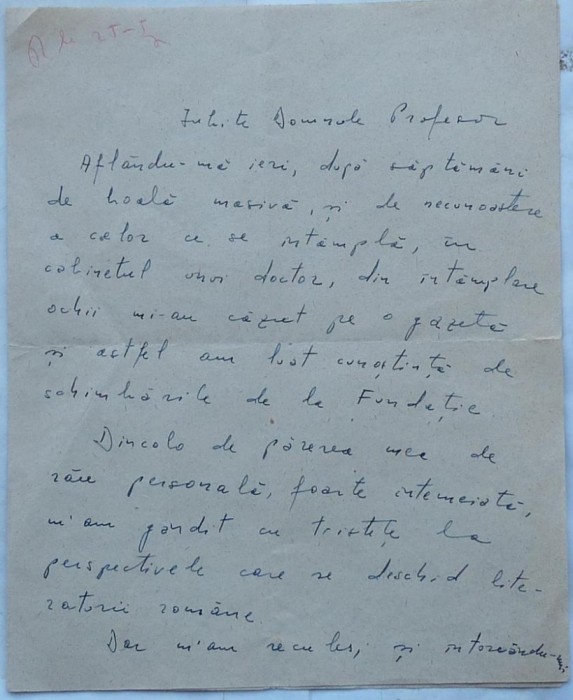 R le 25-5
Iubite Domnule Profesor
Aflându-mă ieri, după săptămâni
de boală masivă, și de necunoaștere
a celor ce se întâmplă, în
cabinetul unui doctor, din întâmplare
ochii mi-au căzut pe o gazetă
și astfel am luat cunoștință de
schimbările de la Fundație
Dincolo de părerea mea de
rău personală, foarte întemeiată,
m'am gândit cu tristețe la
perspectivele care se deschid lite-
raturii române.
Dar m'am reculess, și întorcându-mi